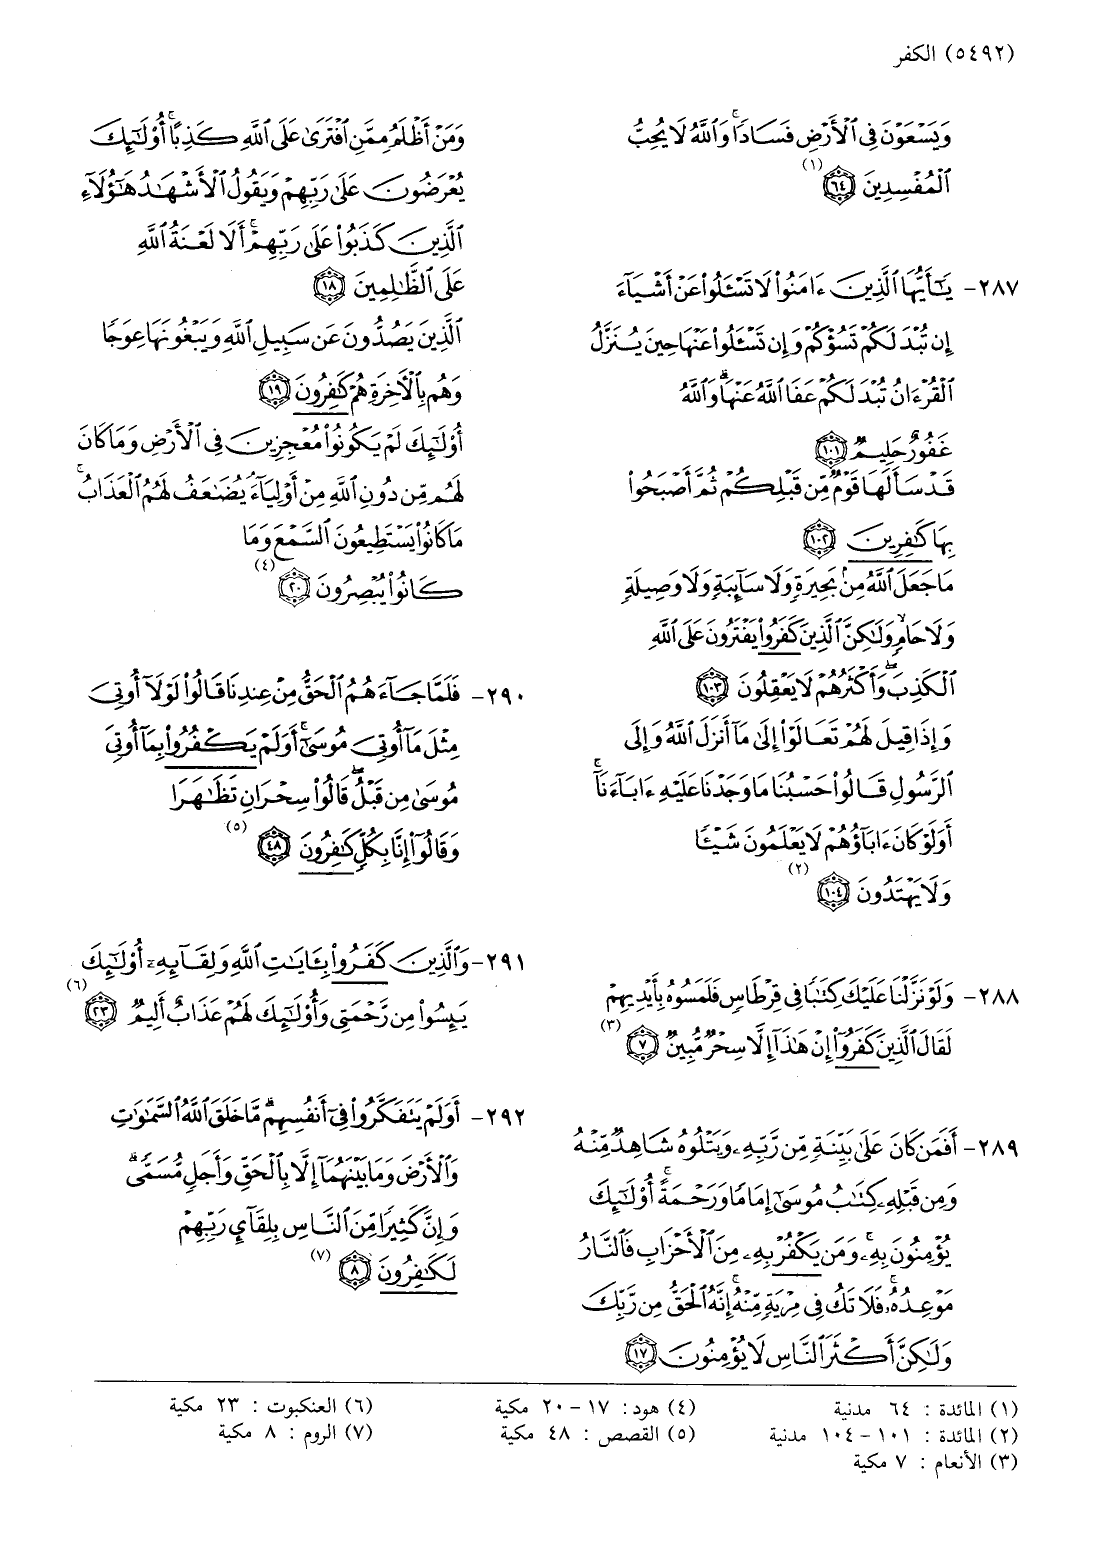 (٥٤٩٢) الكفر
وَيَسْعَوْنَ فِي ٱلْأَرْضِ فَسَادًا ۚ وَٱللَّهُ لَا يُحِبُّ
ٱلْمُفْسِدِينَ ﴿٦٤﴾ (١)
٢٨٧- يَـٰٓأَيُّهَا ٱلَّذِينَ ءَامَنُوا۟ لَا تَسْـَٔلُوا۟ عَنْ أَشْيَآءَ
إِن تُبْدَ لَكُمْ تَسُؤْكُمْ وَإِن تَسْـَٔلُوا۟ عَنْهَا حِينَ يُنَزَّلُ
ٱلْقُرْءَانُ تُبْدَ لَكُمْ عَفَا ٱللَّهُ عَنْهَا ۗ وَٱللَّهُ
غَفُورٌ حَلِيمٌ ﴿١٠١﴾
قَدْ سَأَلَهَا قَوْمٌ مِّن قَبْلِكُمْ ثُمَّ أَصْبَحُوا۟
بِهَا كَـٰفِرِينَ ﴿١٠٢﴾
مَا جَعَلَ ٱللَّهُ مِنۢ بَحِيرَةٍ وَلَا سَآئِبَةٍ وَلَا وَصِيلَةٍ
وَلَا حَامٍ ۙ وَلَـٰكِنَّ ٱلَّذِينَ كَفَرُوا۟ يَفْتَرُونَ عَلَى ٱللَّهِ
ٱلْكَذِبَ ۖ وَأَكْثَرُهُمْ لَا يَعْقِلُونَ ﴿١٠٣﴾
وَإِذَا قِيلَ لَهُمْ تَعَالَوْا۟ إِلَىٰ مَآ أَنزَلَ ٱللَّهُ وَإِلَى
ٱلرَّسُولِ قَالُوا۟ حَسْبُنَا مَا وَجَدْنَا عَلَيْهِ ءَابَآءَنَآ ۚ
أَوَلَوْ كَانَ ءَابَآؤُهُمْ لَا يَعْلَمُونَ شَيْـًٔا
وَلَا يَهْتَدُونَ ﴿١٠٤﴾ (٢)
٢٨٨- وَلَوْ نَزَّلْنَا عَلَيْكَ كِتَـٰبًا فِي قِرْطَاسٍ فَلَمَسُوهُ بِأَيْدِيهِمْ
لَقَالَ ٱلَّذِينَ كَفَرُوٓا۟ إِنْ هَـٰذَآ إِلَّا سِحْرٌ مُّبِينٌ ﴿٧﴾ (٣)
٢٨٩- أَفَمَن كَانَ عَلَىٰ بَيِّنَةٍ مِّن رَّبِّهِۦ وَيَتْلُوهُ شَاهِدٌ مِّنْهُ
وَمِن قَبْلِهِۦ كِتَـٰبُ مُوسَىٰٓ إِمَامًا وَرَحْمَةً ۚ أُو۟لَـٰٓئِكَ
يُؤْمِنُونَ بِهِۦ ۚ وَمَن يَكْفُرْ بِهِۦ مِنَ ٱلْأَحْزَابِ فَٱلنَّارُ
مَوْعِدُهُۥ ۚ فَلَا تَكُ فِي مِرْيَةٍ مِّنْهُ ۚ إِنَّهُ ٱلْحَقُّ مِن رَّبِّكَ
وَلَـٰكِنَّ أَكْثَرَ ٱلنَّاسِ لَا يُؤْمِنُونَ ﴿١٧﴾
وَمَنْ أَظْلَمُ مِمَّنِ ٱفْتَرَىٰ عَلَى ٱللَّهِ كَذِبًا ۚ أُو۟لَـٰٓئِكَ
يُعْرَضُونَ عَلَىٰ رَبِّهِمْ وَيَقُولُ ٱلْأَشْهَـٰدُ هَـٰٓؤُلَآءِ
ٱلَّذِينَ كَذَبُوا۟ عَلَىٰ رَبِّهِمْ ۚ أَلَا لَعْنَةُ ٱللَّهِ
عَلَى ٱلظَّـٰلِمِينَ ﴿١٨﴾
ٱلَّذِينَ يَصُدُّونَ عَن سَبِيلِ ٱللَّهِ وَيَبْغُونَهَا عِوَجًا
وَهُم بِٱلْـَٔاخِرَةِ هُمْ كَـٰفِرُونَ ﴿١٩﴾
أُو۟لَـٰٓئِكَ لَمْ يَكُونُوا۟ مُعْجِزِينَ فِي ٱلْأَرْضِ وَمَا كَانَ
لَهُم مِّن دُونِ ٱللَّهِ مِنْ أَوْلِيَآءَ ۘ يُضَـٰعَفُ لَهُمُ ٱلْعَذَابُ ۚ
مَا كَانُوا۟ يَسْتَطِيعُونَ ٱلسَّمْعَ وَمَا
كَانُوا۟ يُبْصِرُونَ ﴿٢٠﴾ (٤)
٢٩٠- فَلَمَّا جَآءَهُمُ ٱلْحَقُّ مِنْ عِندِنَا قَالُوا۟ لَوْلَآ أُوتِيَ
مِثْلَ مَآ أُوتِيَ مُوسَىٰٓ ۚ أَوَلَمْ يَكْفُرُوا۟ بِمَآ أُوتِيَ
مُوسَىٰ مِن قَبْلُ ۖ قَالُوا۟ سِحْرَانِ تَظَـٰهَرَا
وَقَالُوٓا۟ إِنَّا بِكُلٍّ كَـٰفِرُونَ ﴿٤٨﴾ (٥)
٢٩١- وَٱلَّذِينَ كَفَرُوا۟ بِـَٔايَـٰتِ ٱللَّهِ وَلِقَآئِهِۦٓ أُو۟لَـٰٓئِكَ
يَئِسُوا۟ مِن رَّحْمَتِي وَأُو۟لَـٰٓئِكَ لَهُمْ عَذَابٌ أَلِيمٌ ﴿٢٣﴾ (٦)
٢٩٢- أَوَلَمْ يَتَفَكَّرُوا۟ فِيٓ أَنفُسِهِم ۗ مَّا خَلَقَ ٱللَّهُ ٱلسَّمَـٰوَٰتِ
وَٱلْأَرْضَ وَمَا بَيْنَهُمَآ إِلَّا بِٱلْحَقِّ وَأَجَلٍ مُّسَمًّى ۗ
وَإِنَّ كَثِيرًا مِّنَ ٱلنَّاسِ بِلِقَآئِ رَبِّهِمْ
لَكَـٰفِرُونَ ﴿٨﴾ (٧)
(١) المائدة : ٦٤ مدنية
(٢) المائدة : ١٠١-١٠٤ مدنية
(٣) الأنعام : ٧ مكية
(٤) هود: ١٧-٢٠ مكية
(٥) القصص : ٤٨ مكية
(٦) العنكبوت : ٢٣ مكية
(٧) الروم : ٨ مكية